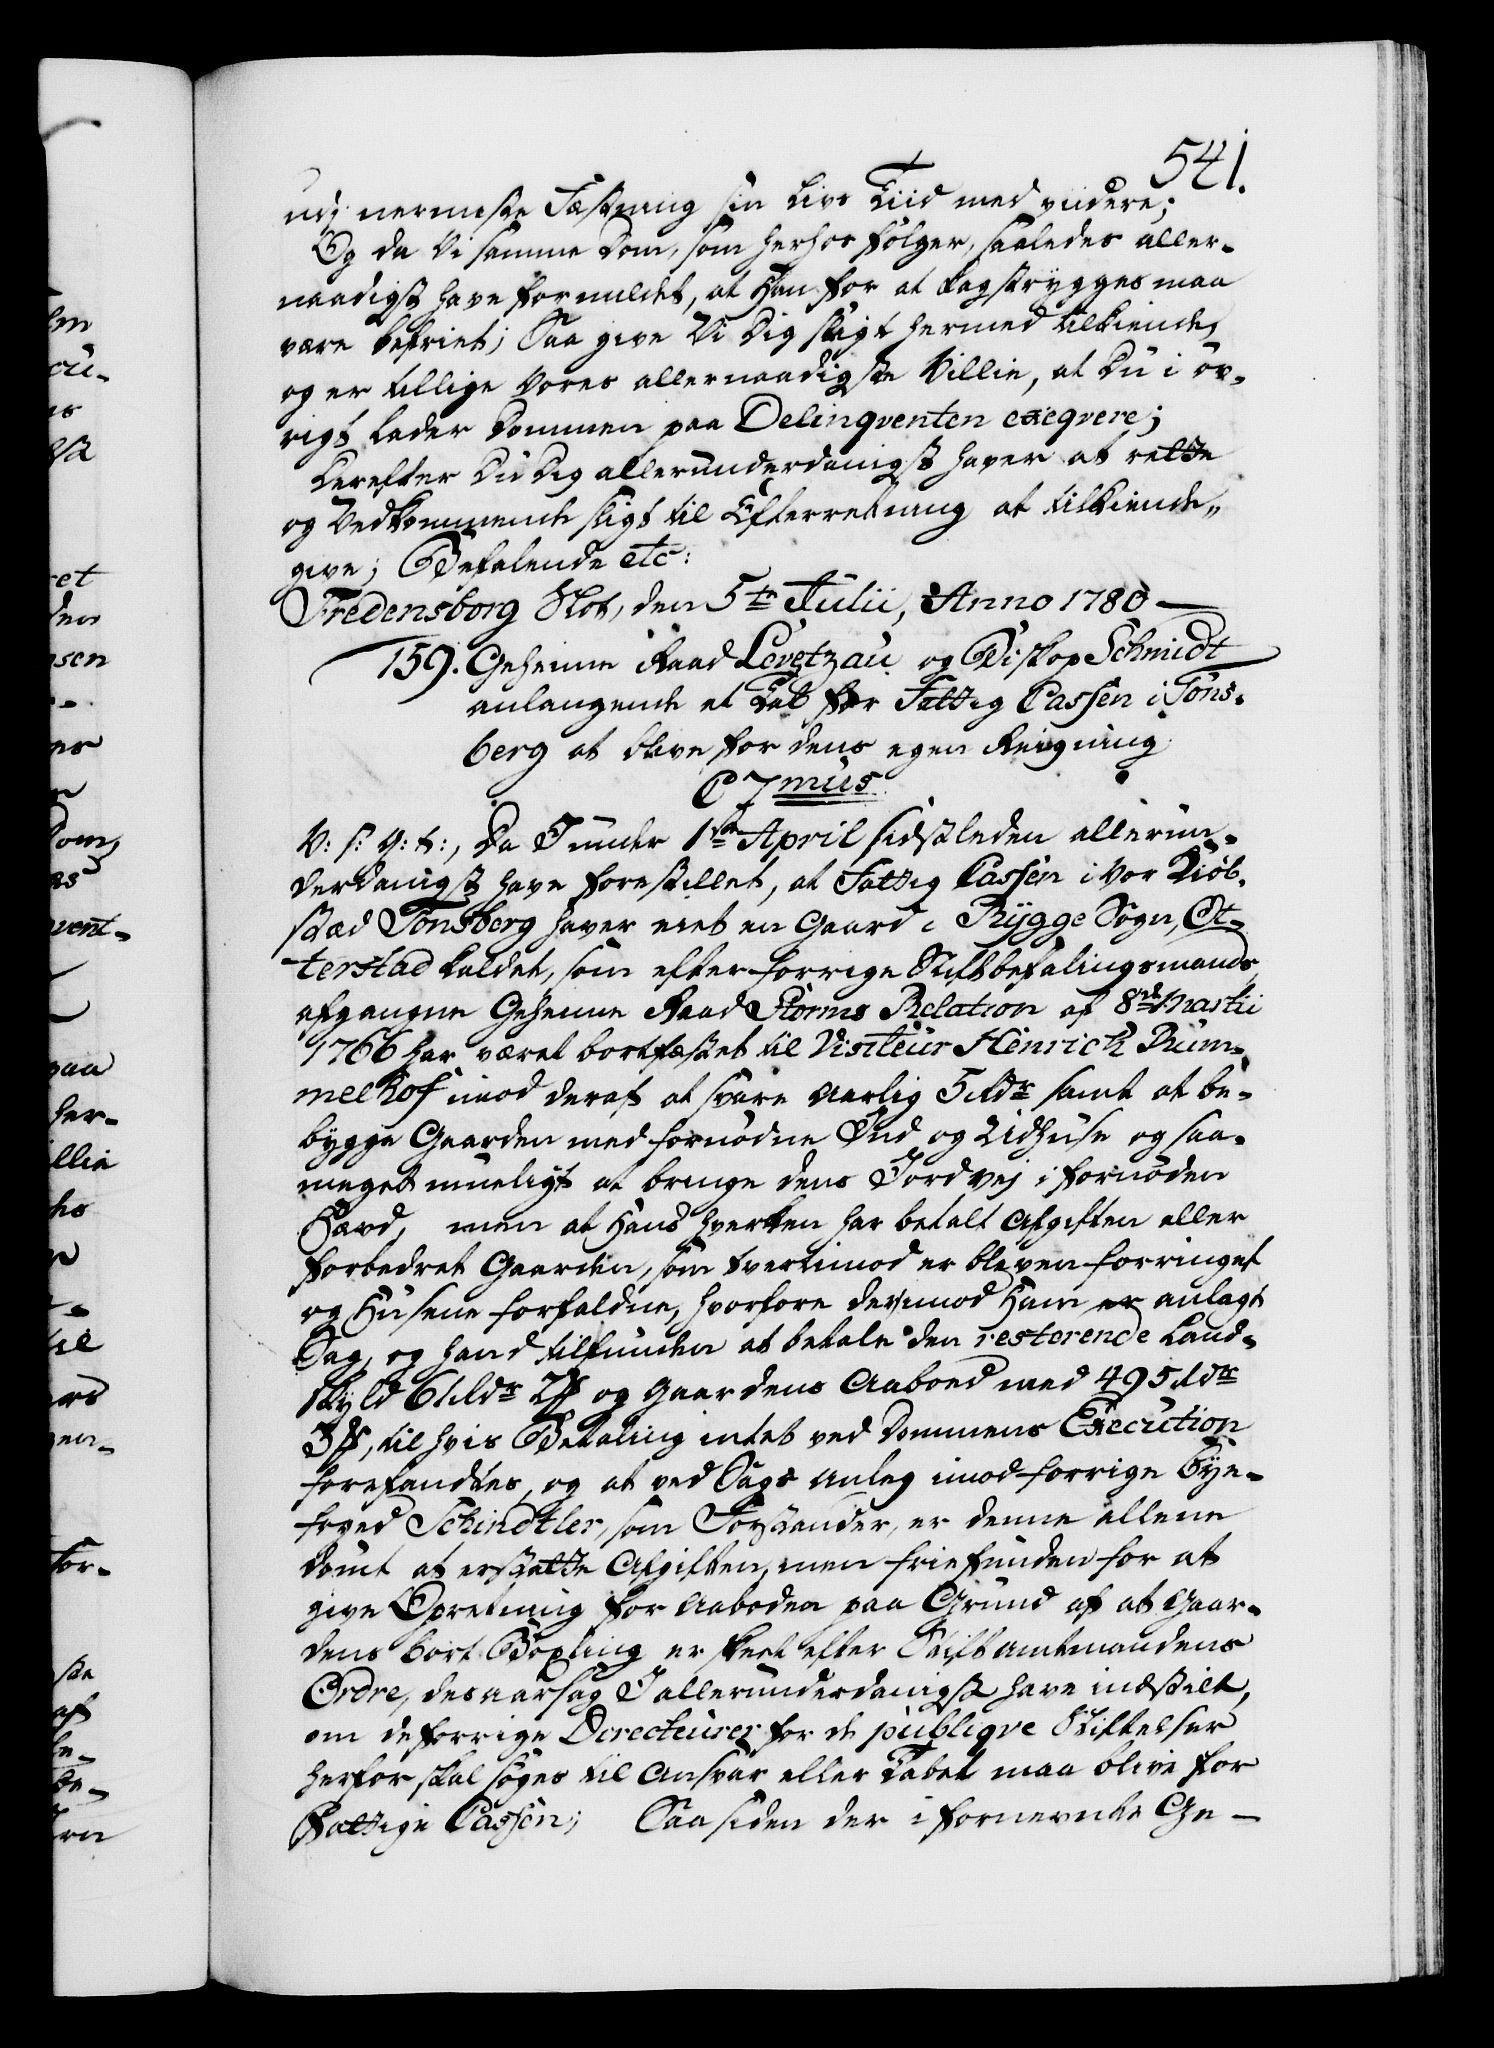 541.
udj nermeste Fæstning sin Livs Tiid med videre;
Og da Vi samme Dom, som herhos følger, saaledes aller-
naadigst have formildet, at Han for at Kagstrygges maa
være befriet; Saa give Vi Dig sligt hermed tilkiende,
og er tillige Vores allernaadigste Villie, at Du i øv-
rigt lader Dommen paa Delinqventen exeqvere;
Derefter Du Dig allerunderdanigst haver at rette
og Vedkommende sligt til Efterretning at tilkiende-
give; Befalende etc:
Fredensborg Slot, den 5te Julii, Anno 1780
159. Geheime Raad Levetzau og Biskop Schmidt
anlangende et Tab for Fattig Cassen i Tøns-
berg at blive for dens egen Reigning.
C 7mus
V: s: G: t:, Da I under 1ste April sidstleden allerun-
derdanigst have forestillet, at Fattig Cassen i Vor Kiøb-
stæd Tønsberg haver eiet en Gaard i Rÿgge Sogn, Ot-
terstad kaldet, som efter forrige Stiftbefalingsmands
afgangne Geheime Raad Storms Relation af 8de Martii
1766 har været bortfæstet til Visiteur Henrich Rum-
melhof imod deraf at svare Aarlig 5 rdr samt at be-
bygge Gaarden med fornødne Ind og Udhuse og saa-
meget mueligt at bringe dens Jordvej i fornøden
Hævd, men at Hand hverken har betalt Afgiften eller
forbedret Gaarden, som tvertimod er bleven forringet
og Husene forfaldne, hvorfore derimod Ham er anlagt
Sag, og hand tilfunden at betale den resterende Land-
skyld 61 rdr 2 ß og Gaardens Aaboed med 495 rdr
3 ß, til hvis Betaling intet ved Dommens Execution
forefandtes, og at ved Sags Anleg imod forrige Bÿe-
foved Schindtler, som Forstander, er denne allene
dømt at erstatte Afgiften, men frie funden for at
give Opretning for Aaboden paa Grund af at Gaar-
dens bort Bøxling er skeet efter Stiftamtmandens
Ordre, desaarsag I allerunderdanigst have indstilt,
om de forrige Directeurer for de publiqve Stiftelser
herfor skal søges til Ansvar eller Tabet maa blive for
Fattige Cassen; Saa siden der i fornevnte Ge-